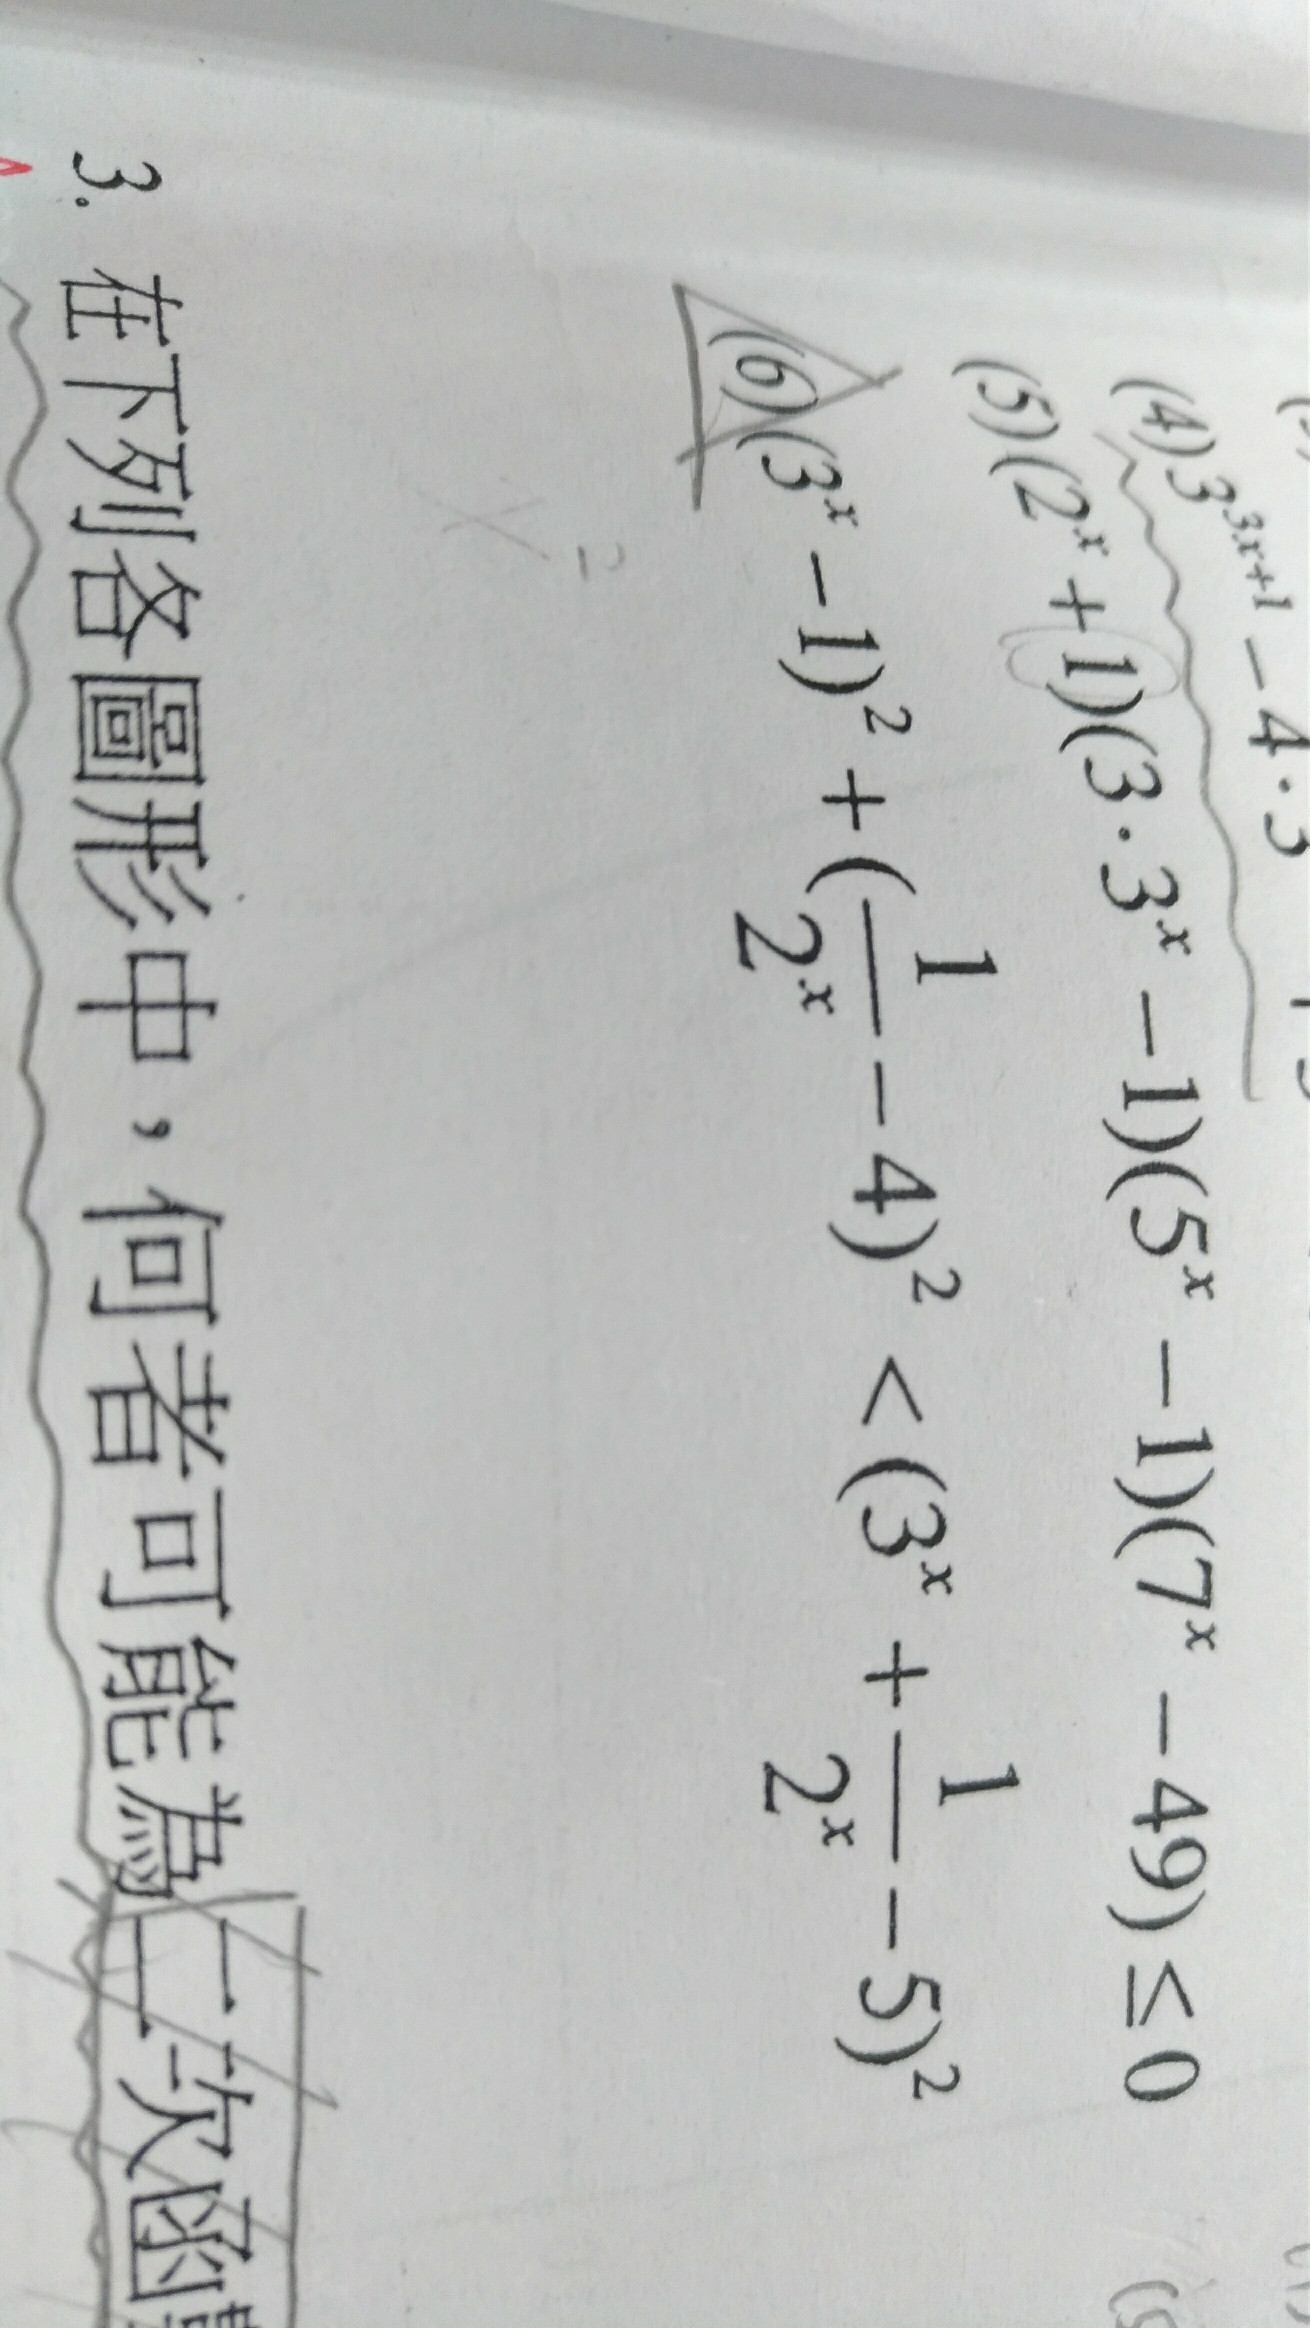 (4) 3^{3x+1} - 4 · 3
(5) (2^x + 1)(3 · 3^x - 1)(5^x - 1)(7^x - 49) ≤ 0
(6) (3^x - 1)^2 + (\frac{1}{2^x} - 4)^2 < (3^x + \frac{1}{2^x} - 5)^2
x^2
3. 在下列各圖形中，何者可能為二次函